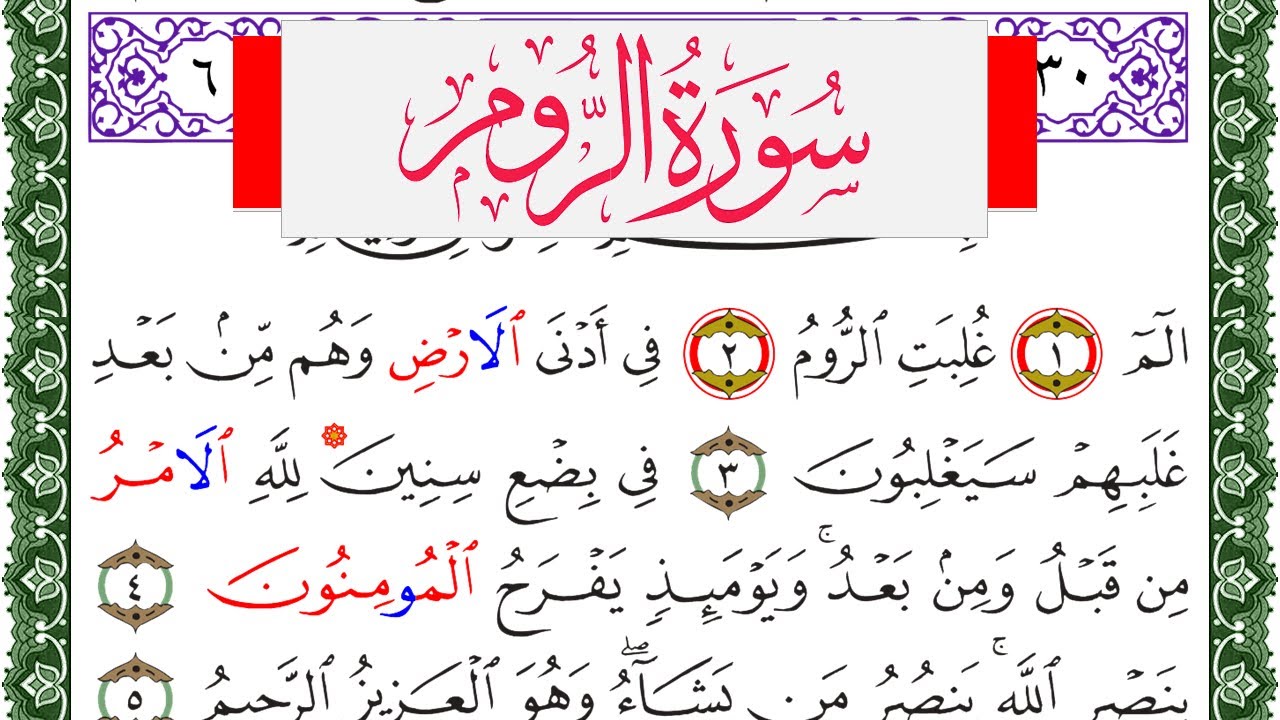 ٣٠ ٦
سُورَةُ الرُّومِ
الٓمٓ ١ غُلِبَتِ ٱلرُّومُ ٢ فِي أَدۡنَى ٱلَارۡضِ وَهُم مِّنۢ بَعۡدِ
غَلَبِهِمۡ سَيَغۡلِبُونَ ٣ فِي بِضۡعِ سِنِينَ لِلَّهِ ٱلَامۡرُ
مِن قَبۡلُ وَمِنۢ بَعۡدُۚ وَيَوۡمَئِذٖ يَفۡرَحُ ٱلۡمُومِنُونَ ٤
بِنَصۡرِ ٱللَّهِۚ يَنصُرُ مَن يَشَآءُۖ وَهُوَ ٱلۡعَزِيزُ ٱلرَّحِيمُ ٥